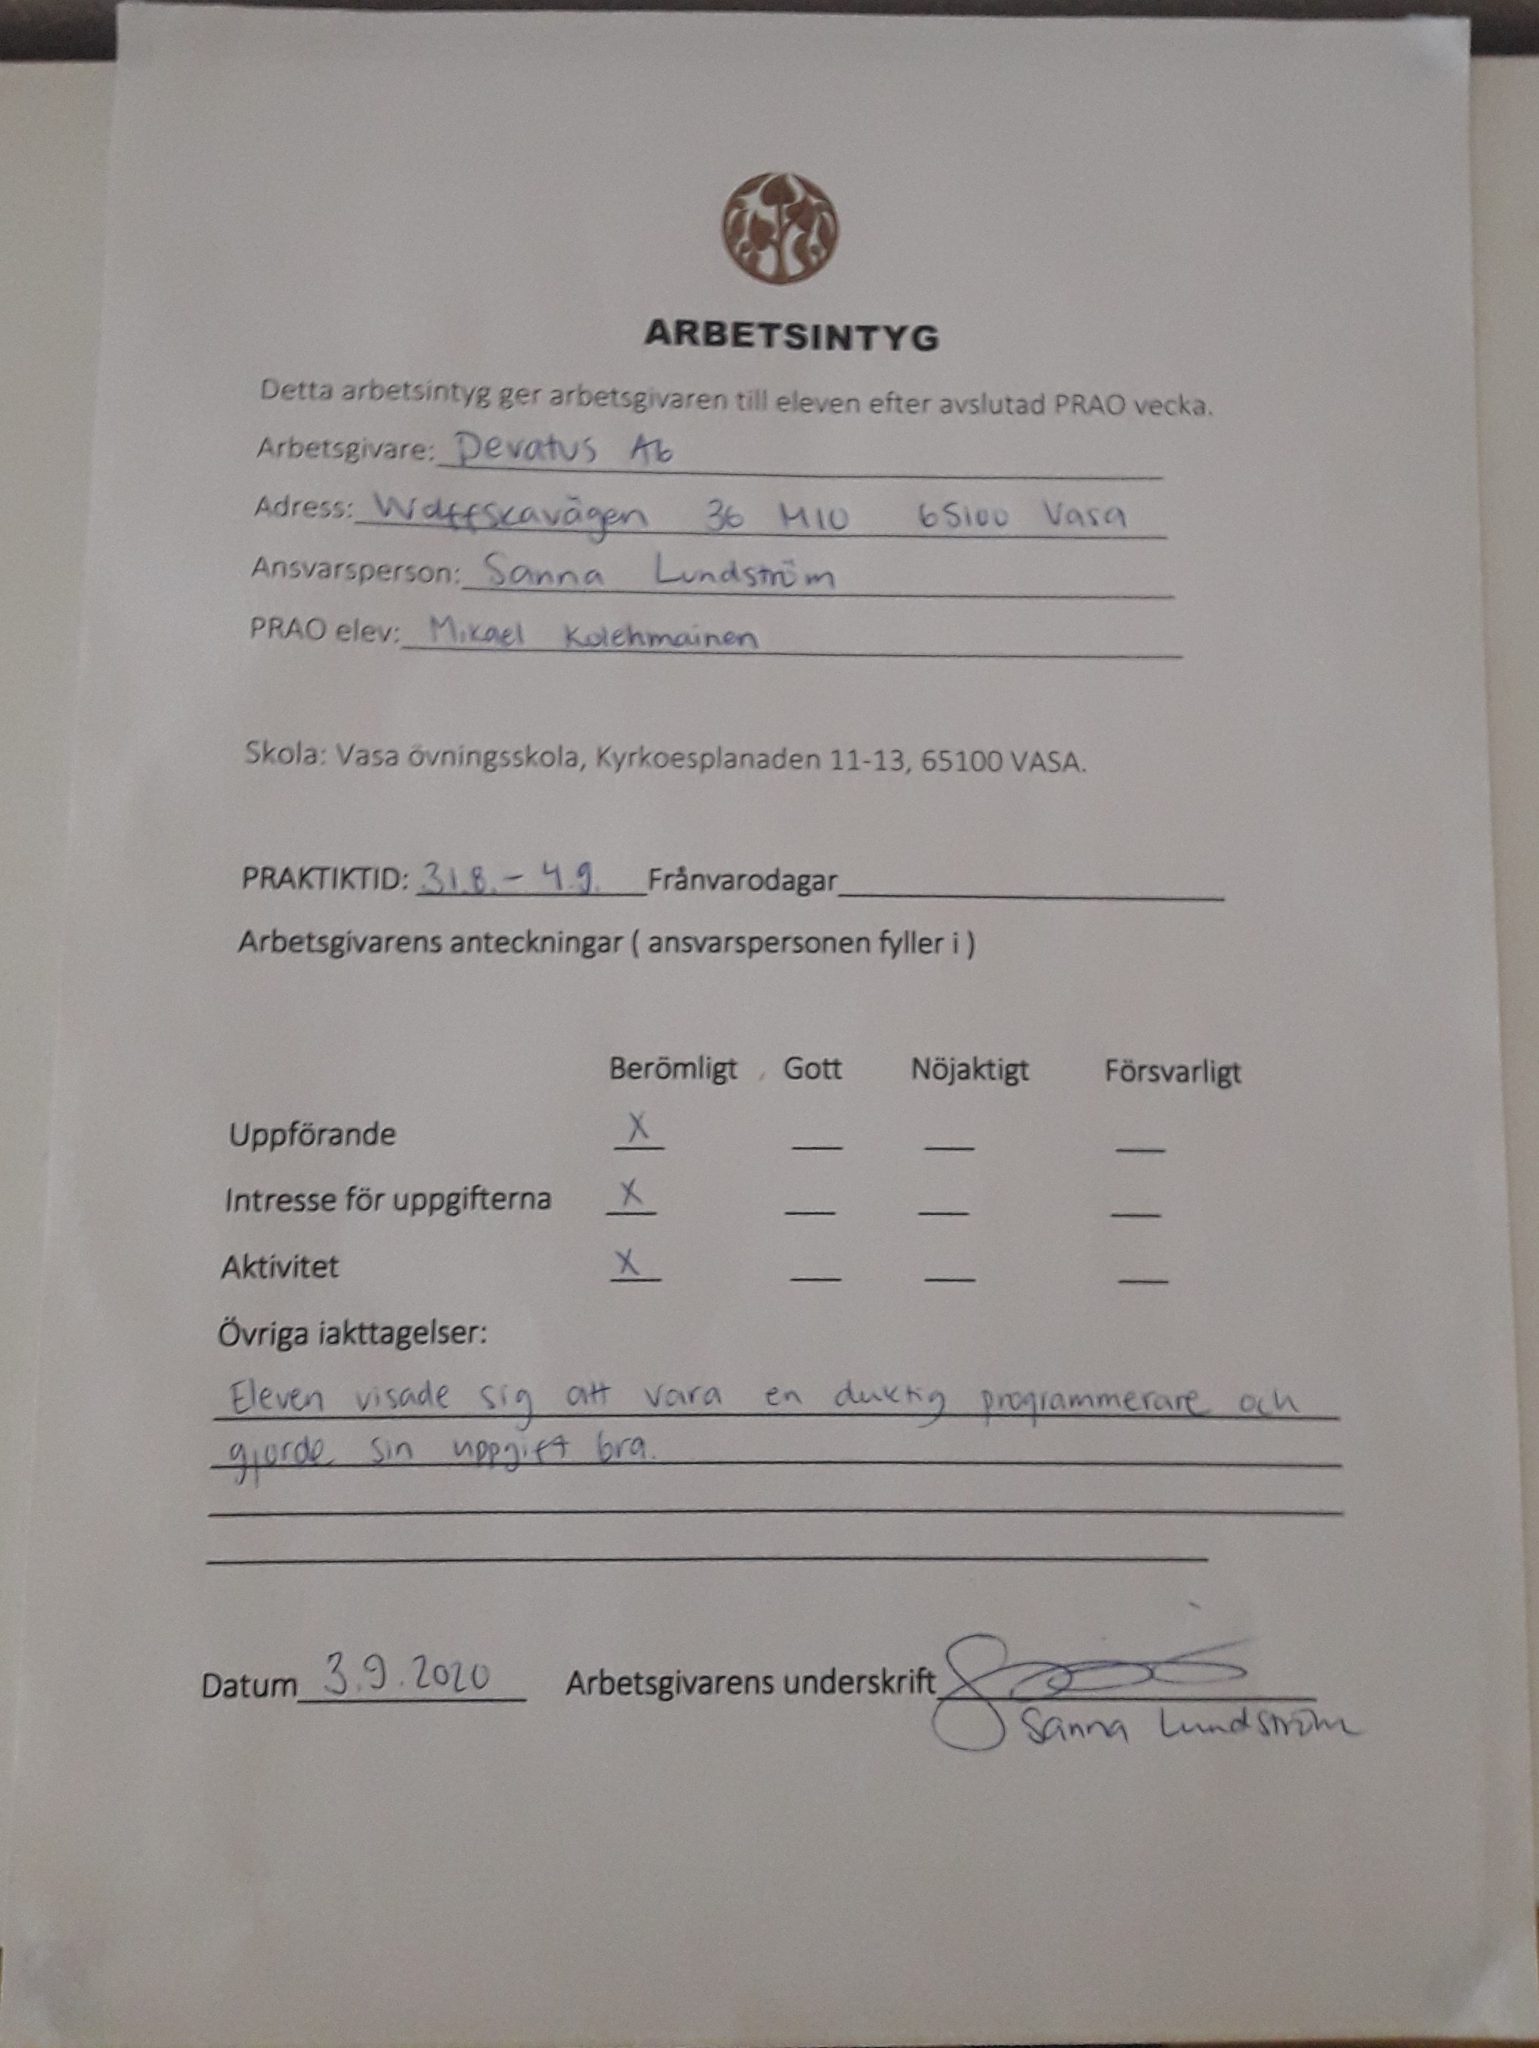 ARBETSINTYG
Detta arbetsintyg ger arbetsgivaren till eleven efter avslutad PRAO vecka.
Arbetsgivare: Devatus Ab
Adress: Wolffskavägen 36 M10 65100 Vasa
Ansvarsperson: Sanna Lundström
PRAO elev: Mikael Kolehmainen
Skola: Vasa övningsskola, Kyrkoesplanaden 11-13, 65100 VASA.
PRAKTIKTID: 31.8. - 4.9. Frånvarodagar
Arbetsgivarens anteckningar ( ansvarspersonen fyller i )
Berömligt Gott Nöjaktigt Försvarligt
Uppförande X
Intresse för uppgifterna X
Aktivitet X
Övriga iakttagelser:
Eleven visade sig att vara en duktig programmerare och
gjorde sin uppgift bra.
Datum 3.9.2020 Arbetsgivarens underskrift
Sanna Lundström